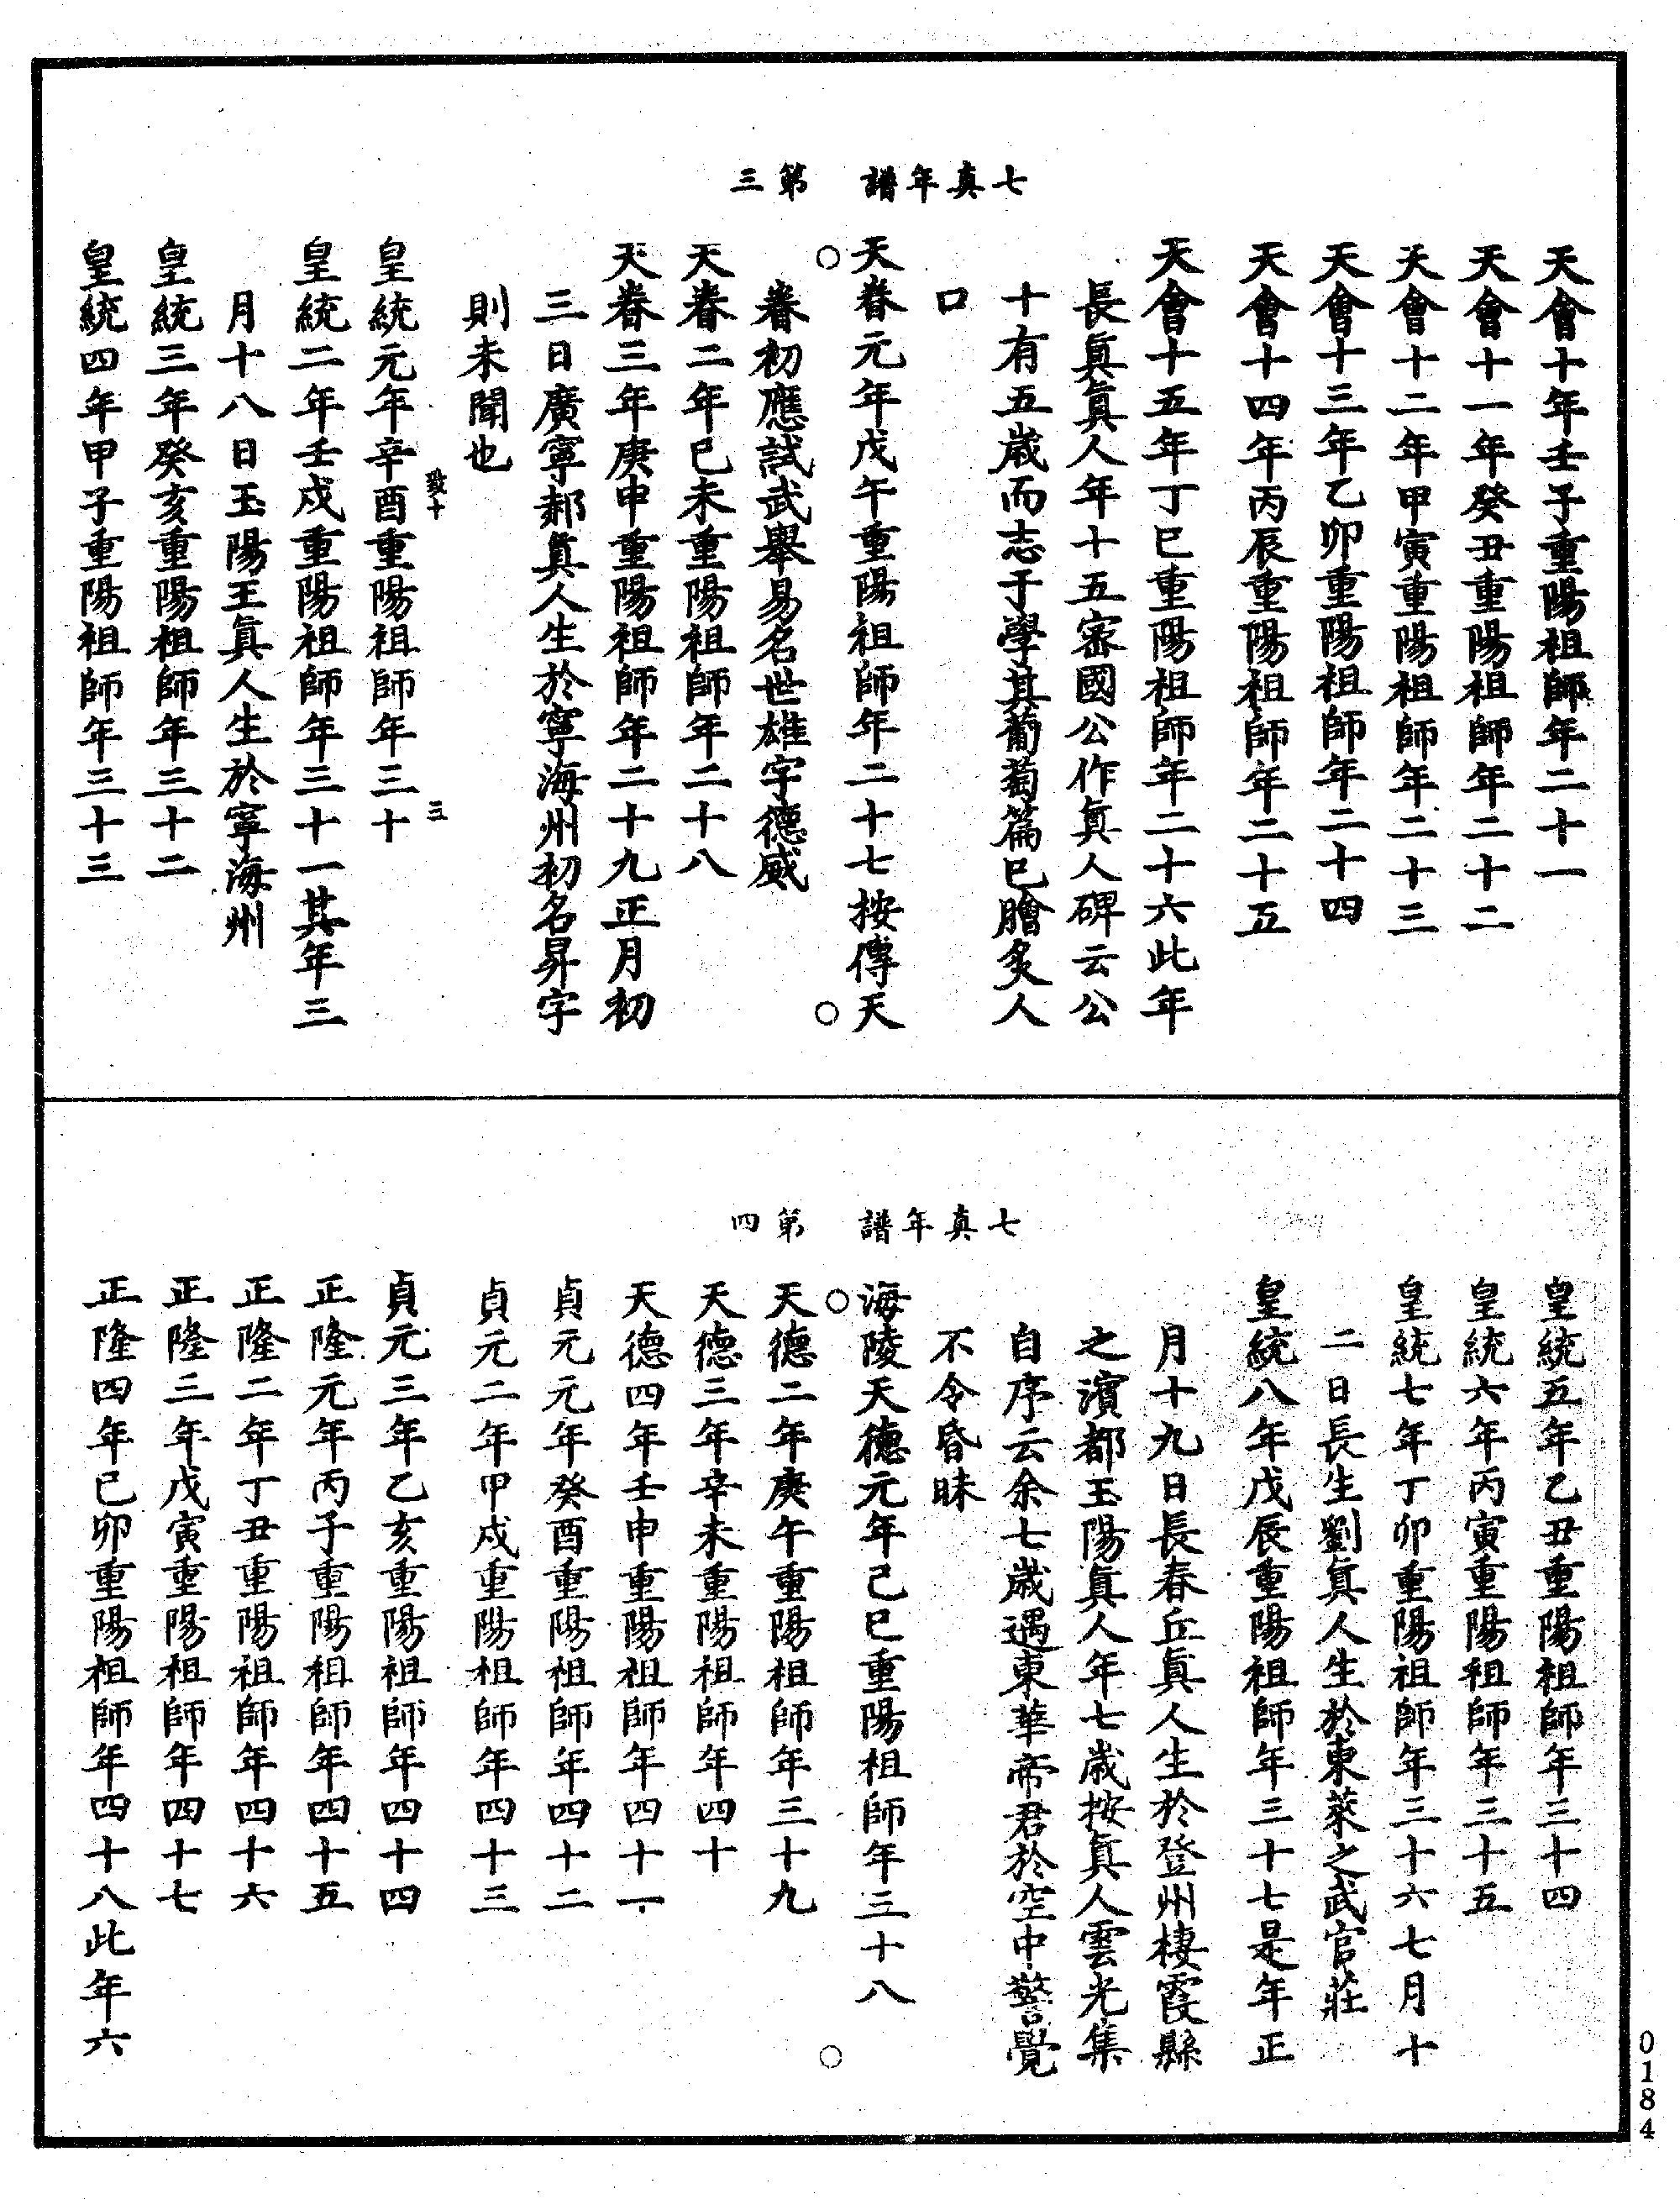 七真年譜　第三
天會十年壬子重陽祖師年二十一
天會十一年癸丑重陽祖師年二十二
天會十二年甲寅重陽祖師年二十三
天會十三年乙卯重陽祖師年二十四
天會十四年丙辰重陽祖師年二十五
天會十五年丁巳重陽祖師年二十六此年
長眞眞人年十五密國公作眞人碑云公
十有五歲而志于學其葡萄篇已膾炙人
口
天眷元年戊午重陽祖師年二十七按傳天
眷初應試武舉易名世雄字德威
天眷二年己未重陽祖師年二十八
天眷三年庚申重陽祖師年二十九正月初
三日廣寧郝眞人生於寧海州初名昇字
則未聞也
致十　三
皇統元年辛酉重陽祖師年三十
皇統二年壬戌重陽祖師年三十一其年三
月十八日玉陽王眞人生於寧海州
皇統三年癸亥重陽祖師年三十二
皇統四年甲子重陽祖師年三十三
七真年譜　第四
皇統五年乙丑重陽祖師年三十四
皇統六年丙寅重陽祖師年三十五
皇統七年丁卯重陽祖師年三十六七月十
二日長生劉眞人生於東萊之武官莊
皇統八年戊辰重陽祖師年三十七是年正
月十九日長春丘眞人生於登州棲霞縣
之濱都玉陽眞人年七歲按眞人雲光集
自序云余七歲遇東華帝君於空中警覺
不令昏昧
海陵天德元年己巳重陽祖師年三十八
天德二年庚午重陽祖師年三十九
天德三年辛未重陽祖師年四十
天德四年壬申重陽祖師年四十一
貞元元年癸酉重陽祖師年四十二
貞元二年甲戌重陽祖師年四十三
貞元三年乙亥重陽祖師年四十四
正隆元年丙子重陽祖師年四十五
正隆二年丁丑重陽祖師年四十六
正隆三年戊寅重陽祖師年四十七
正隆四年己卯重陽祖師年四十八此年六
0184